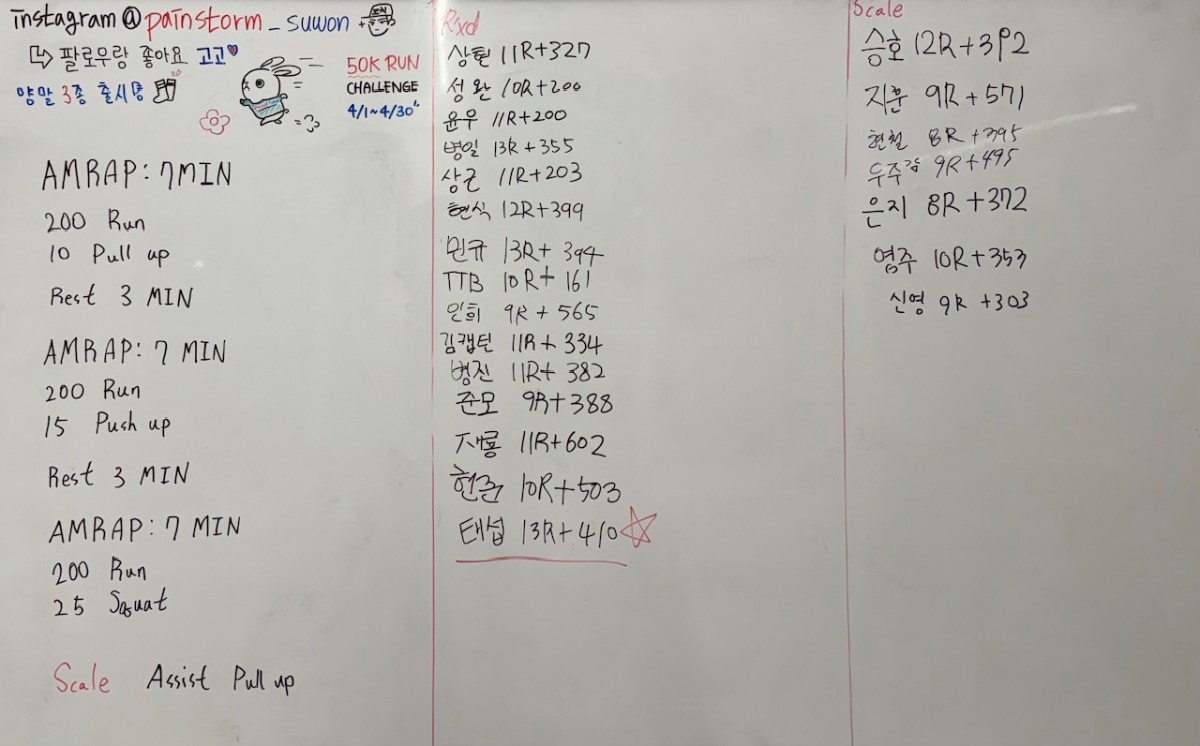 instagram@painstorm_suwon
팔로우랑 좋아요 고고
양말 3종 출시중
50K RUN
CHALLENGE
4/1~4/30
AMRAP: 7MIN
200 Run
10 Pull up
Rest 3 MIN
AMRAP: 7 MIN
200 Run
15 Push up
Rest 3 MIN
AMRAP: 7 MIN
200 Run
25 Squat
Scale Assist Pull up
Rxd
상현 11R+327
성완 10R+200
윤우 11R+200
병일 13R+355
상근 11R+203
현식 12R+399
민규 13R+394
TTB 10R+161
인희 9R+565
김캡틴 11R+334
병진 11R+382
준모 9R+388
재룡 11R+602
현준 10R+503
태섭 13R+410
Scale
승호 12R+392
지훈 9R+571
현철 8R+395
두주 9R+495
은지 8R+372
영주 10R+353
신영 9R+303